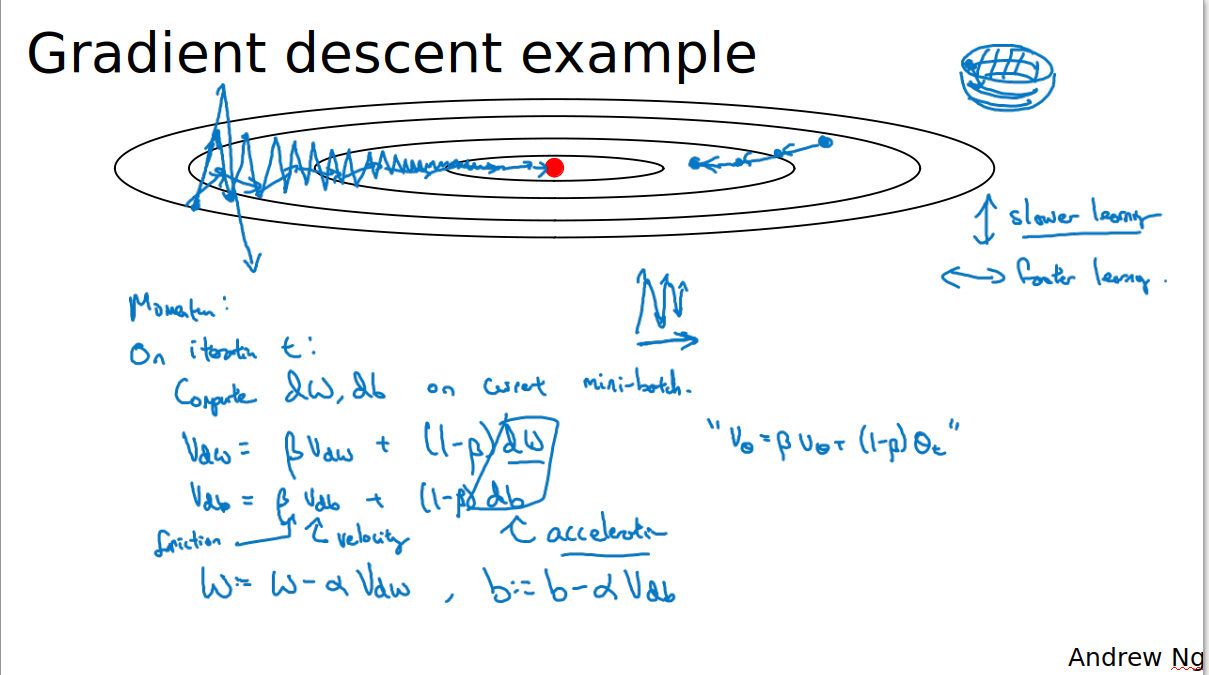 Gradient descent example
↕ slower learning
↔ faster learning.
Momentum:
On iteration t:
Compute dW, db on current mini-batch.
Vdw = βVdw + (1-β)dW
"Vθ = βVθ + (1-β)θt"
Vdb = βVdb + (1-β)db
friction velocity acceleration
W := W - αVdw , b := b - αVdb
Andrew Ng